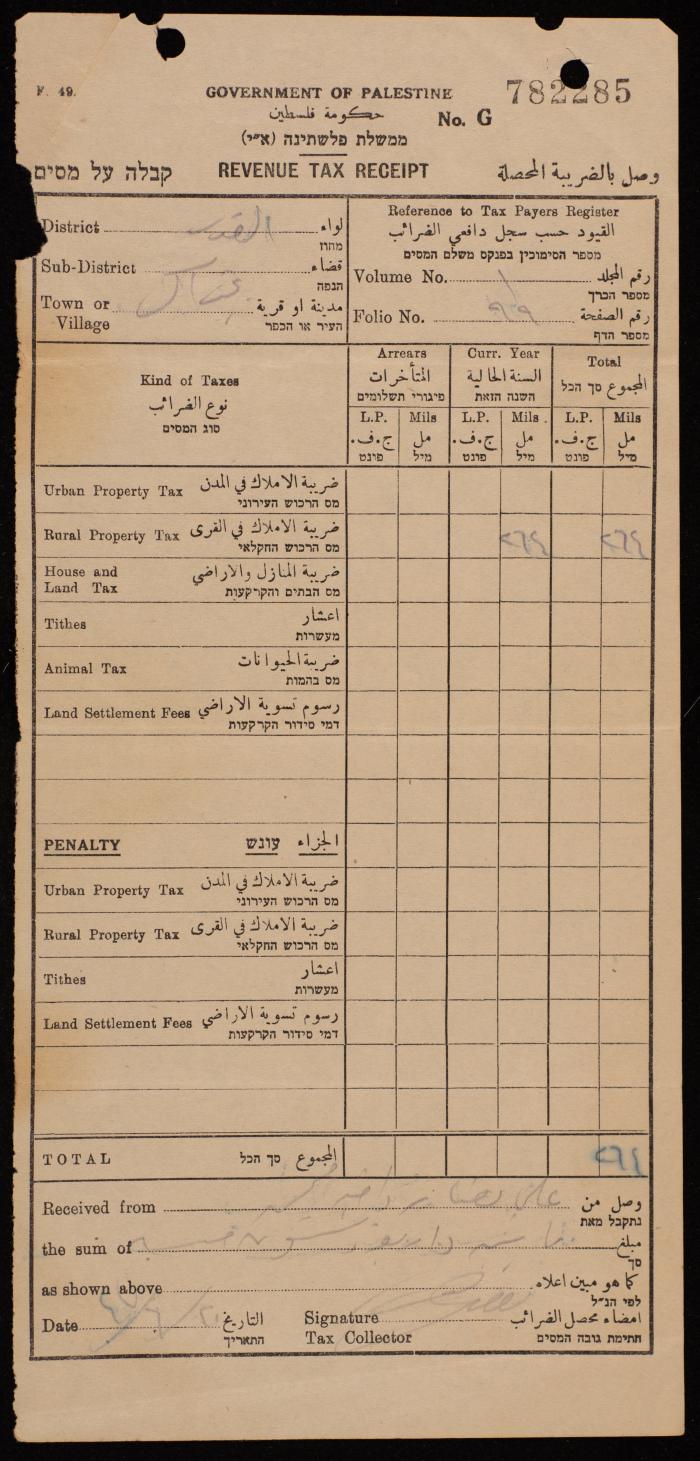 F. 49.
GOVERNMENT OF PALESTINE
782285
حكومة فلسطين
No. G
ממשלת פלשתינה (א״י)
קבלה על מסים
REVENUE TAX RECEIPT
وصل بالضريبة المحصلة
District القدس لواء
מחוז
Sub-District قضاء
הנפה
Town or مدينة او قرية
Village העיר או הכפר
Reference to Tax Payers Register
القيود حسب سجل دافعي الضرائب
מספר הסימוכין בפנקס משלם המסים
Volume No. ١ رقم المجلد
מספר הכרך
Folio No. ٩٩ رقم الصفحة
מספר הדף
Kind of Taxes
نوع الضرائب
סוג המסים
Arrears Curr. Year Total
المتأخرات السنة الحالية المجموع סך הכל
פיגורי תשלומים השנה הזאת
L.P. Mils L.P. Mils. L.P. Mils
ج.ف. مل ج.ف. مل ج.ف. مل
פונט מיל פונט מיל פונט מיל
Urban Property Tax ضريبة الاملاك في المدن
מס הרכוש העירוני
Rural Property Tax ضريبة الاملاك في القرى ٢٦٤ ٢٦٤
מס הרכוש החקלאי
House and ضريبة المنازل والاراضي
Land Tax מס הבתים והקרקעות
Tithes اعشار
מעשרות
Animal Tax ضريبة الحيوانات
מס בהמות
Land Settlement Fees رسوم تسوية الاراضي
דמי סידור הקרקעות
PENALTY עונש الجزاء
Urban Property Tax ضريبة الاملاك في المدن
מס הרכוש העירוני
Rural Property Tax ضريبة الاملاك في القرى
מס הרכוש החקלאי
Tithes اعشار
מעשרות
Land Settlement Fees رسوم تسوية الاراضي
דמי סידור הקרקעות
TOTAL סך הכל المجموع ٢٦٤
Received from علي وصل من
נתקבל מאת
the sum of مبلغ
סך
as shown above كما هو مبين اعلاه
לפי הנ״ל
Date التاريخ Signature امضاء محصل الضرائب
התאריך Tax Collector חתימת גובה המסים